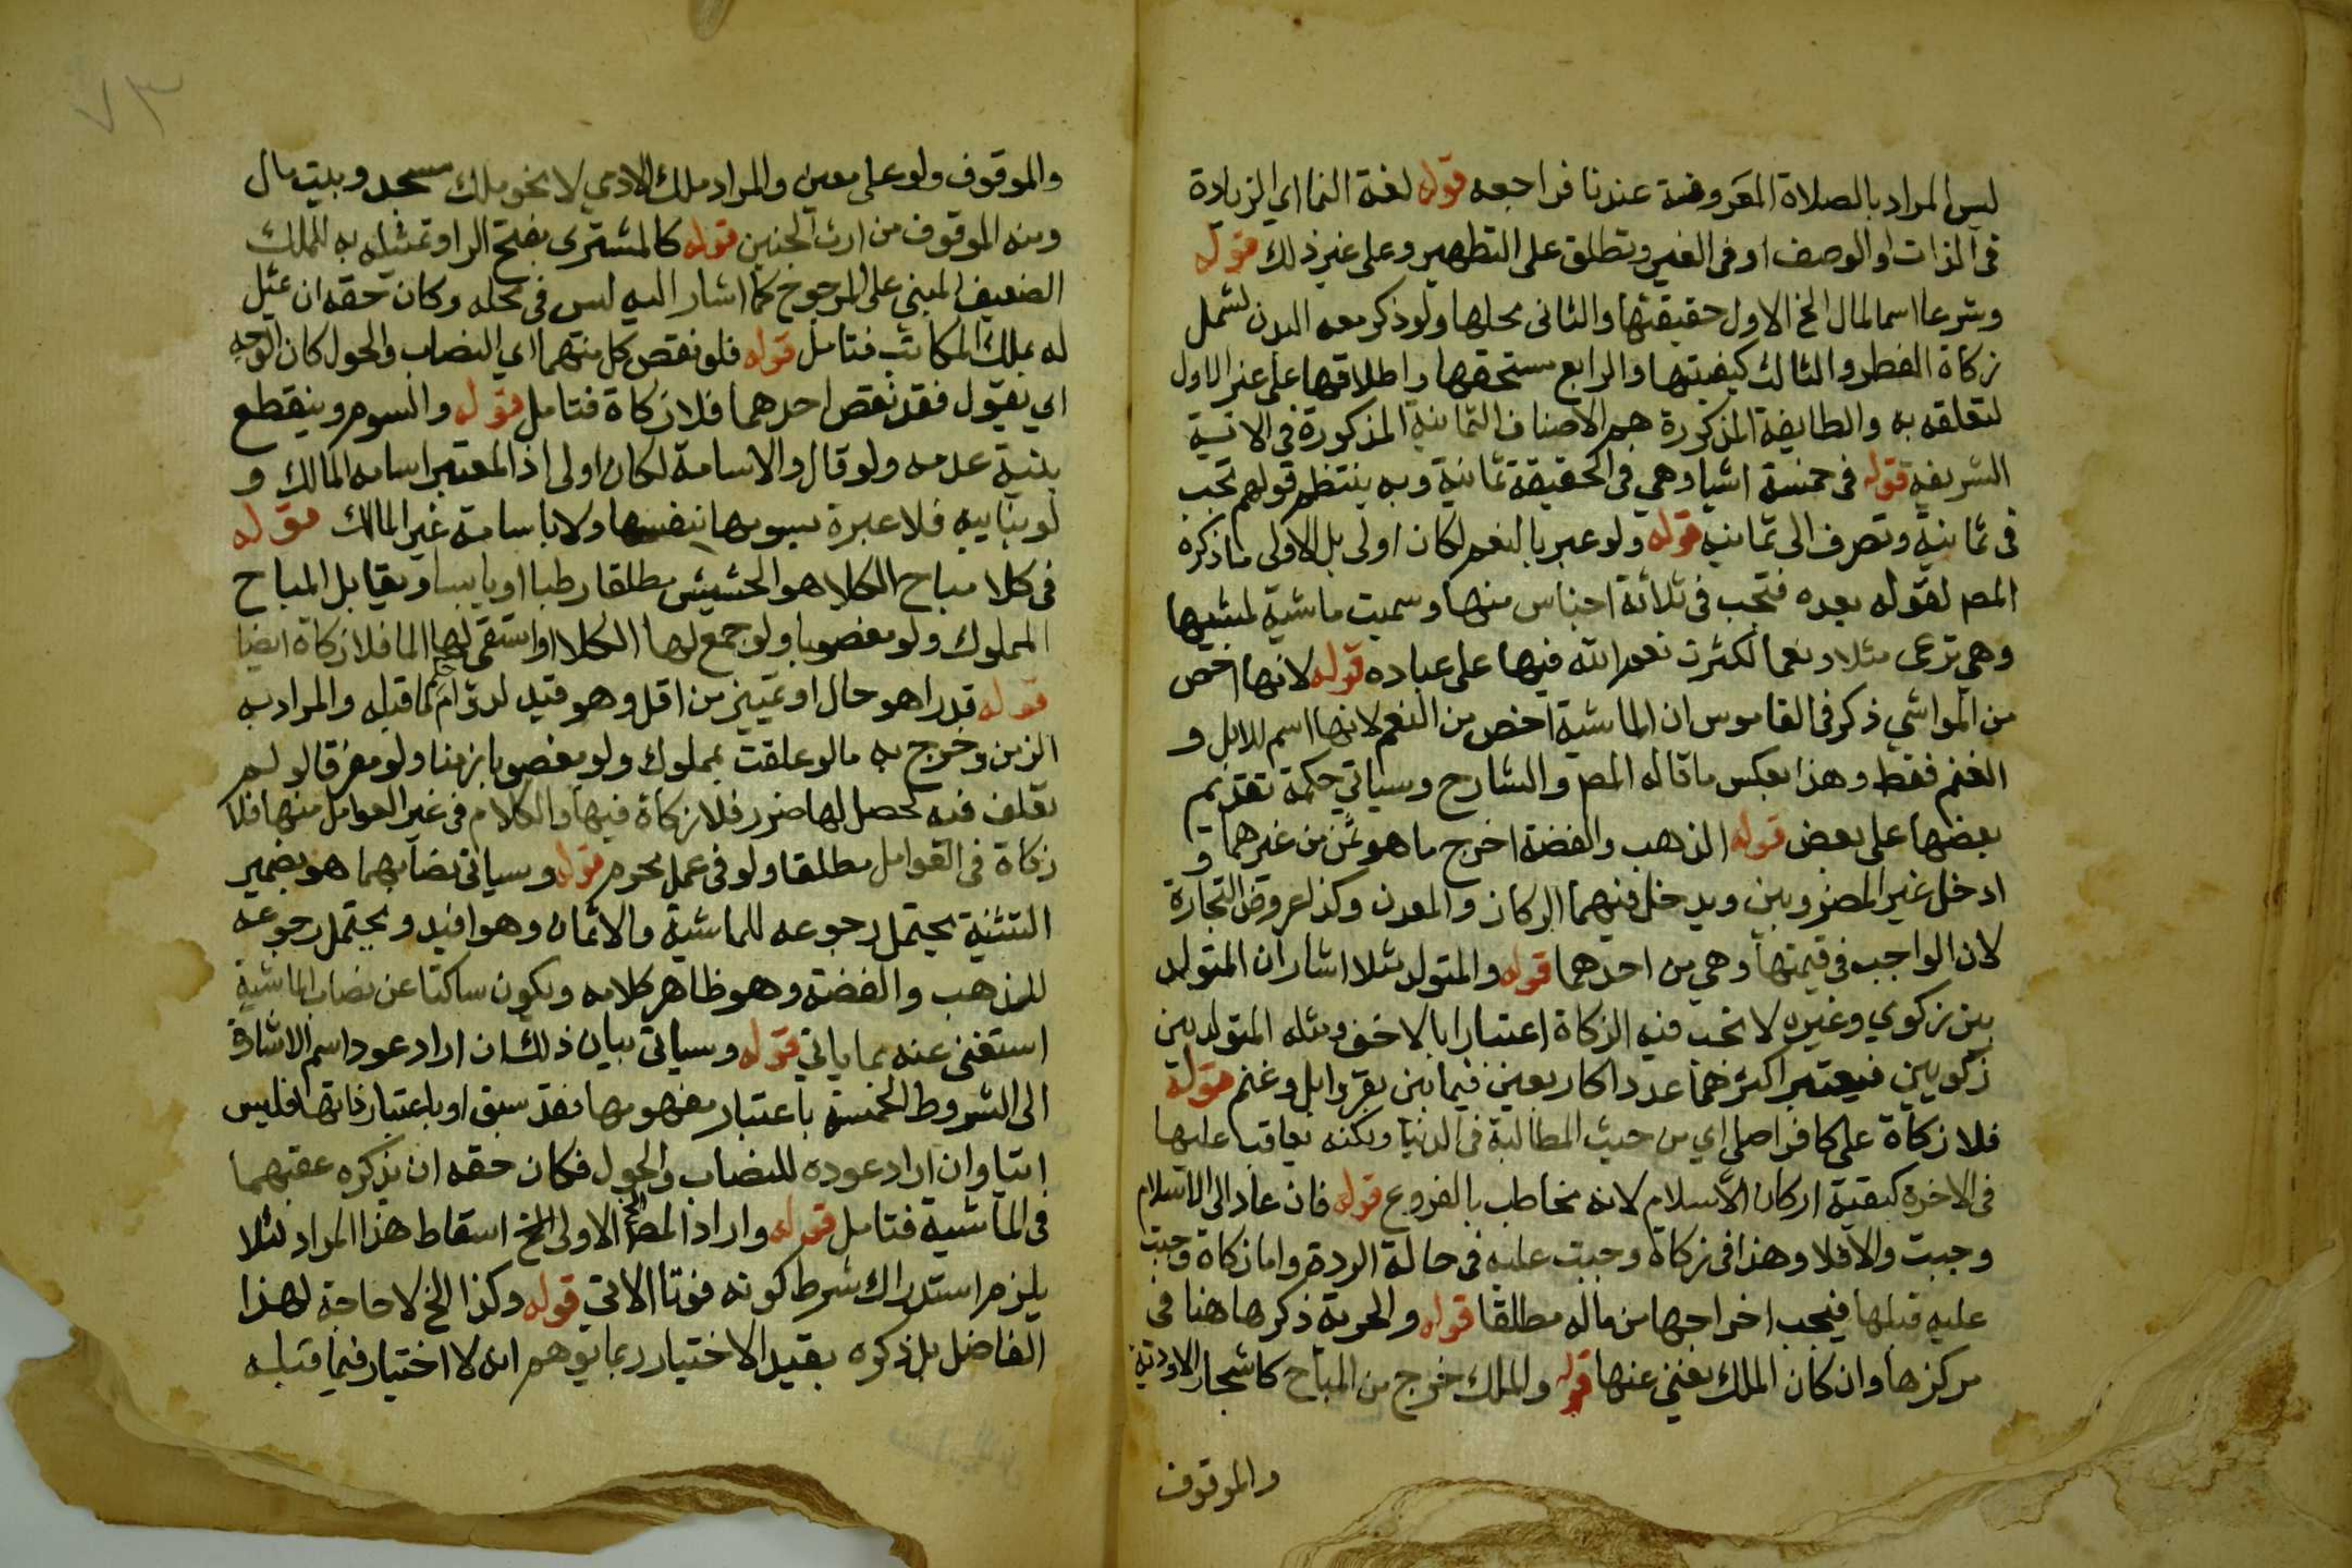 ليس المراد بالصلاة المعروفة عندنا فراجعه قوله لغة النما اي الزيادة
في الذات او الوصف او في الغير وتطلق على التطهير وعلى غير ذلك قوله
وشرعا اسما لمال الخ الاول حقيقتها والثاني محلها ولو ذكر معه البدن لشمل
زكاة الفطر والثالث كيفيتها والرابع مستحقها واطلاقها على غير الاول
لتعلقه به والطايفة المذكورة هم الاصناف الثمانية المذكورة في الاية
الشريفة قوله في خمسة اشيا وهي في الحقيقة ثمانية وبه ينتظم قولهم تجب
في ثمانية وتصرف الى ثمانية قوله ولو عبر بالنعم لكان اولى بل الاولى ما ذكره
المص لقوله بعده فتجب في ثلاثة اجناس منها وسميت ماشية لمشيها
وهي ترعى مثلا ونعما لكثرة نعم الله فيها على عباده قوله لانها اخص
من المواشي ذكر في القاموس ان الماشية اخص من النعم لانها اسم للابل و
الغنم فقط وهذا بعكس ما قاله المص والشارح وسياتي حكمة تقديم
بعضها على بعض قوله الذهب والفضة اخرج ما هو ثمن من غيرهما و
ادخل غير المضروبين ويدخل فيهما الركاز والمعدن وكذا عروض التجارة
لان الواجب في قيمتها وهي من احدهما قوله والمتولد مثلا اشار ان المتولد
بين زكوي وغيره لا تجب فيه الزكاة اعتبارا بالاخف ومثله المتولد بين
زكويين فيعتبر اكثرهما عددا كاربعين فيما بين بقر وابل وغنم قوله
فلا زكاة على كافر اصلي اي من حيث المطالبة في الدنيا ولكنه يعاقب عليها
في الاخرة كبقية اركان الاسلام لانه مخاطب بالفروع قوله فان عاد الى الاسلام
وجبت والا فلا وهذا في زكاة وجبت عليه في حالة الردة واما زكاة وجبت
عليه قبلها فيجب اخراجها من ماله مطلقا قوله والحرية ذكرها هنا في
مركزها وان كان الملك يغني عنها قوله والملك خرج من المباح كاشجار الاودية
والموقوف
٧٣
والموقوف ولو على معين والمراد ملك الادمي لا نحو ملك مسجد وبيت مال
ومنه الموقوف من ارث الجنين قوله كالمشترى بفتح الرا وتمثيله به للملك
الضعيف المبني على المرجوح كما اشار اليه ليس في محله وكان حقه ان يمثل
له بملك المكاتب فتامل قوله فلو نقص كل منهما اي النصاب والحول كان الوجه
اي يقول فقد نقص احدهما فلا زكاة فتامل قوله والسوم وينقطع
بنية عدمه ولو قال والاسامة لكان اولى اذ المعتبر اسامه المالك و
لو بنايبه فلا عبرة بسومها بنفسها ولا باسامة غير المالك قوله
في كلا مباح الكلا هو الحشيش مطلقا رطبا او يابسا ويقابل المباح
المملوك ولو مغصوبا ولو جمع لها الكلا او استقى لها الما فلا زكاة ايضا
قوله قدرا هو حال او تمييز من اقل وهو قيد لدوام لما قبله والمراد به
الزمن وخرج به ما لو علقت بمملوك ولو مغصوبا زمنا ولو مفرقا لو لم
تعلف فيه لحصل لها ضرر فلا زكاة فيها والكلام في غير العوامل منها فلا
زكاة في العوامل مطلقا ولو في عمل محرم قوله وسياتي نصابهما هو بضمير
التثنية يحتمل رجوعه للماشية والاثمان وهو افيد ويحتمل رجوعه
للذهب والفضة وهو ظاهر كلامه ويكون ساكتا عن نصاب الماشية
استغنى عنه بما ياتي قوله وسياتي بيان ذلك ان اراد عود اسم الاشارة
الى الشروط الخمسة باعتبار مفهومها فقد سبق او باعتبار ذاتها فليس
اتيا وان اراد عوده للنصاب والحول فكان حقه ان يذكره عقبهما
في الماشية فتامل قوله واراد المص الاولى الخ اسقاط هذا المراد لئلا
يلزم استدراك شرط كونه قوتا الاتي قوله وكذا الخ لا حاجة لهذا
الفاضل بل ذكره بقيد الاختيار ربما يوهم انه لا اختيار فيما قبله